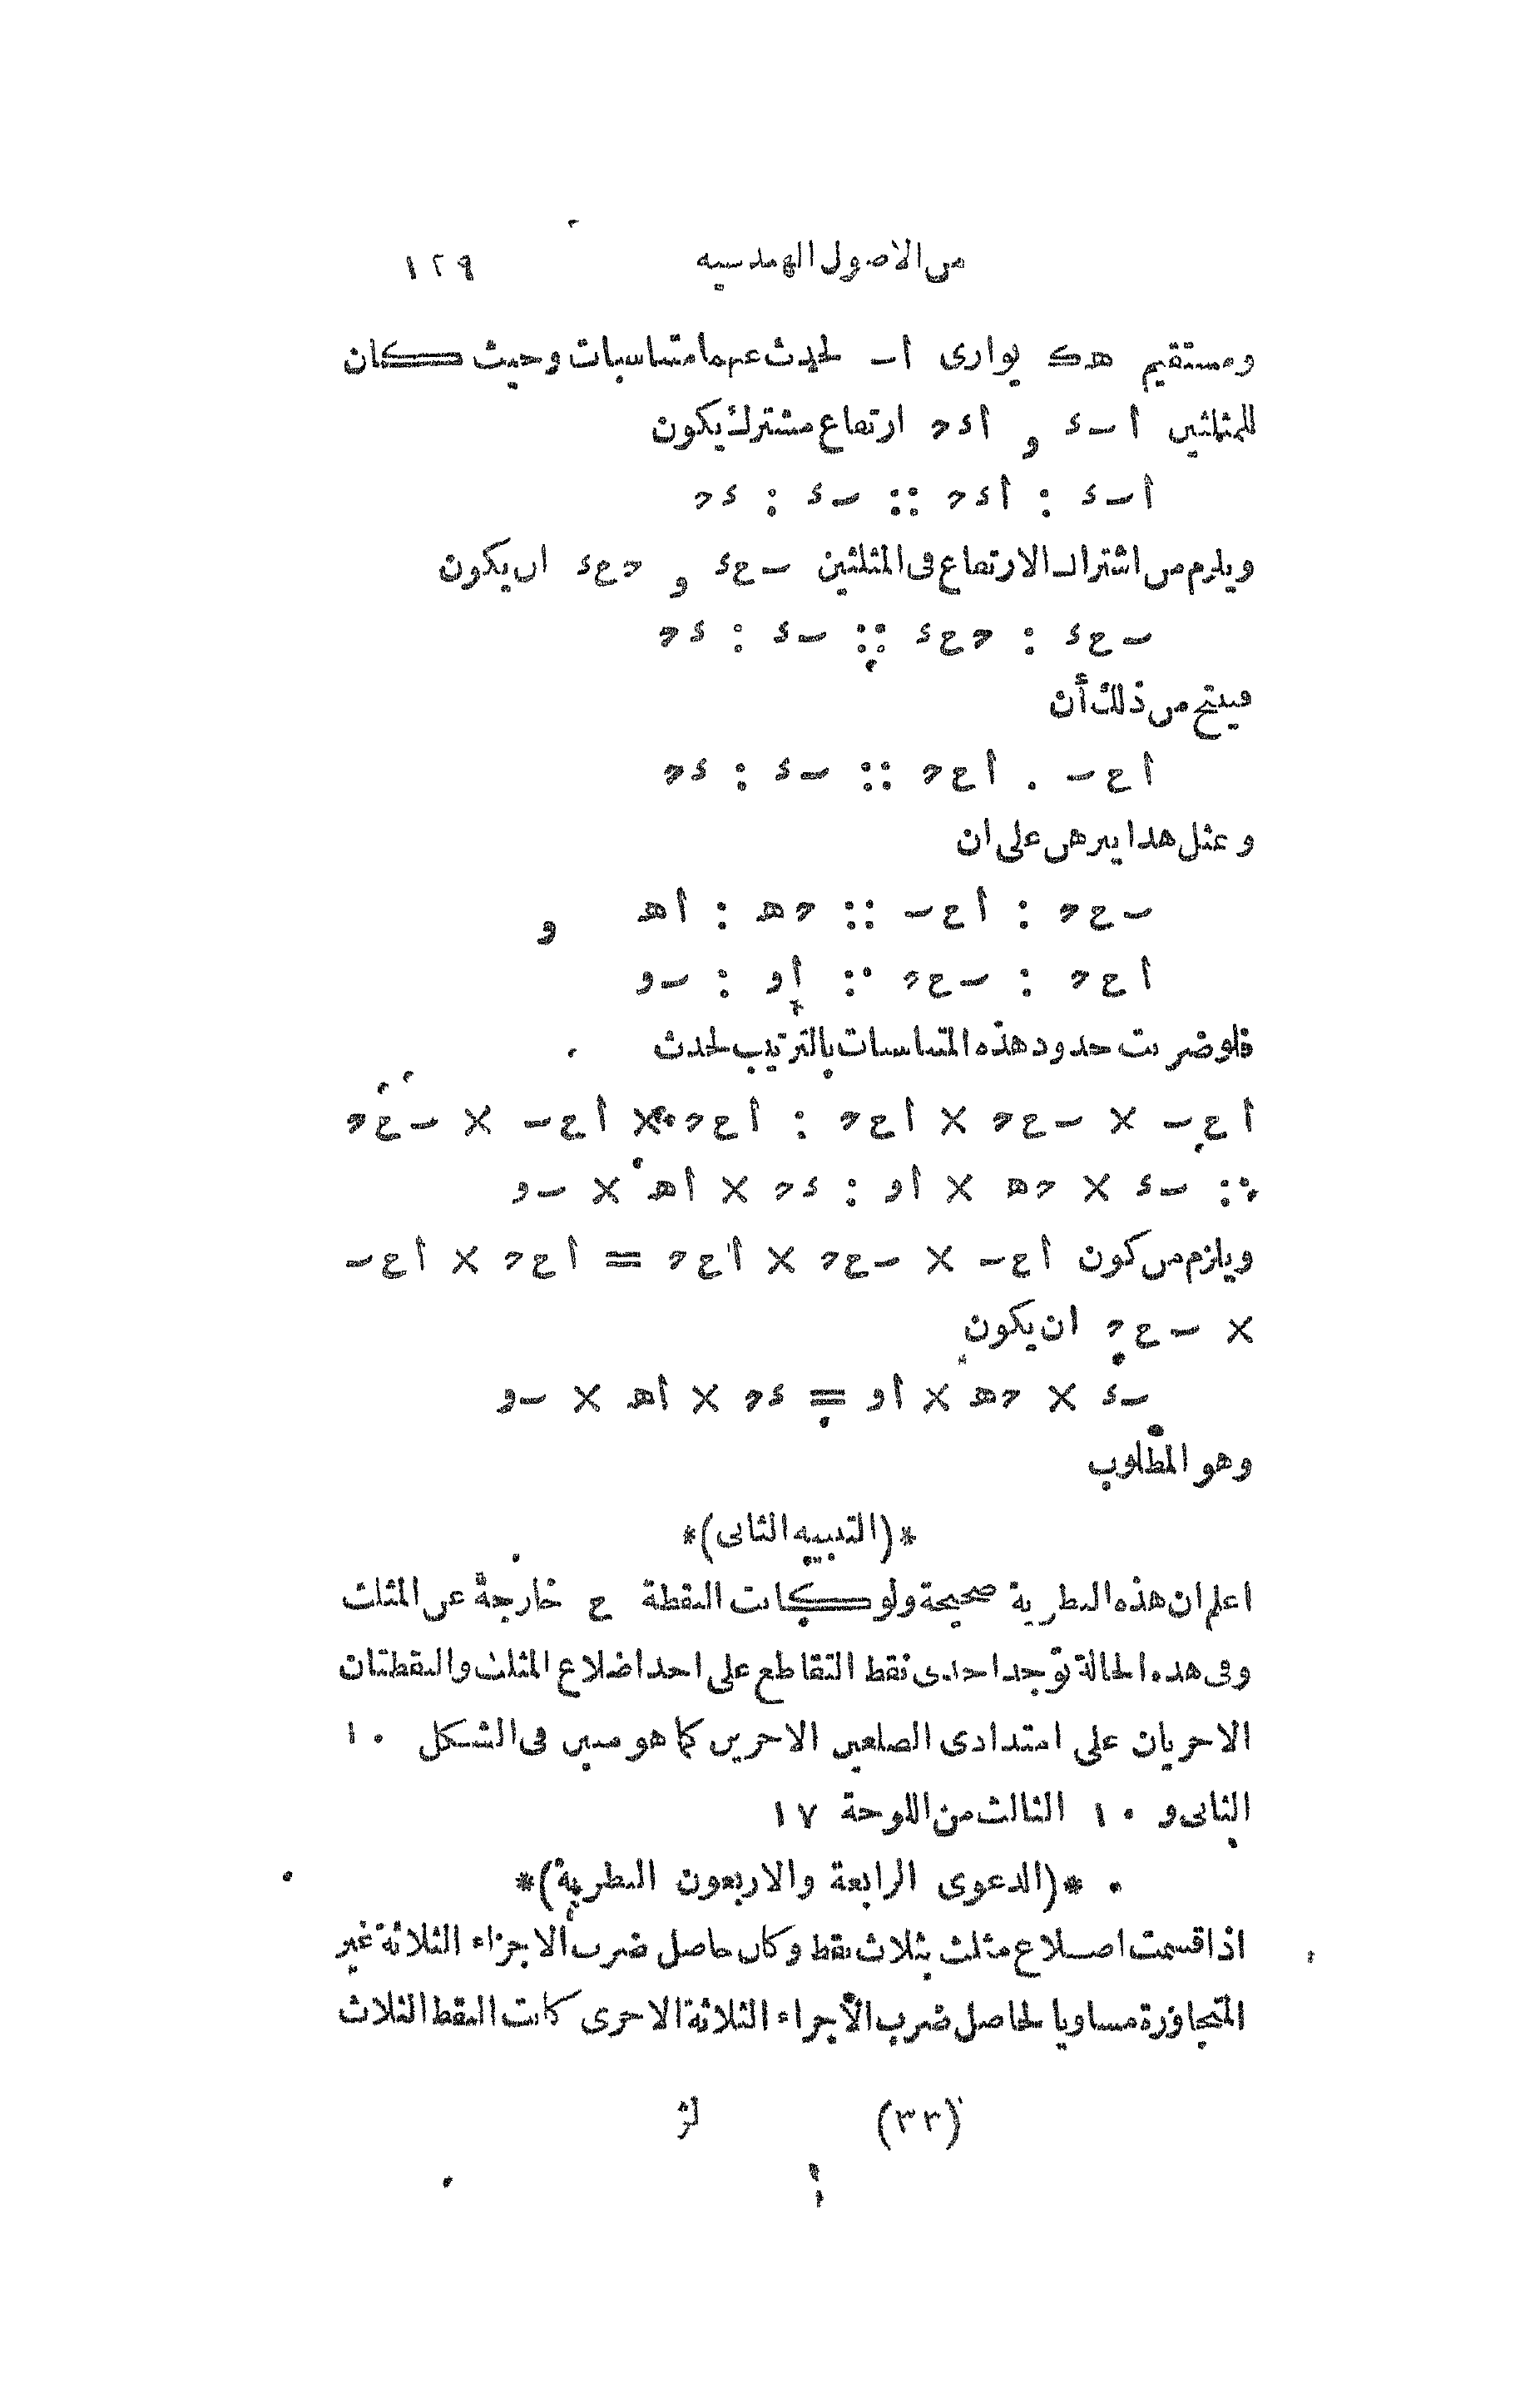 من الاصول الهندسيه ١٢٩
ومستقيم هك يوازى اب لحدث عنهما متناسبات وحيث كان
للمثلثين ابء و اءح ارتفاع مشترك يكون
ابء : اءح :: بء : ءح
ويلزم من اشتراك الارتفاع فى المثلثين بعء و حعء ان يكون
بعء : حعء :: بء : ءح
فينتج من ذلك أن
اعب : اعح :: بء : ءح
وبمثل هذا يبرهن على ان
بعح : اعب :: حه : اه و
اعح : بعح :: او : بو
فلو ضربت حدود هذه المتناسبات بالترتيب لحدث
اعب × بعح × اعح : اعح × اعب × بعح
:: بء × حه × او : ءح × اه × بو
ويلزم من كون اعب × بعح × اعح = اعح × اعب
× بعح ان يكون
بء × حه × او = ءح × اه × بو
وهو المطلوب
*(التنبيه الثانى)*
اعلم ان هذه النظرية صحيحة ولو كانت النقطة ع خارجة عن المثلث
وفى هذه الحالة توجد احدى نقط التقاطع على احد اضلاع المثلث والنقطتان
الاخريان على امتدادى الضلعين الاخرين كما هو مبين فى الشكل ١٠
الثانى و ١٠ الثالث من اللوحة ١٧
*(الدعوى الرابعة والاربعون النظرية)*
اذا قسمت اضلاع مثلث بثلاث نقط وكان حاصل ضرب الاجزاء الثلاثة غير
المتجاورة مساويا لحاصل ضرب الأجزاء الثلاثة الاخرى كانت النقط الثلاث
(٣٣) لژ